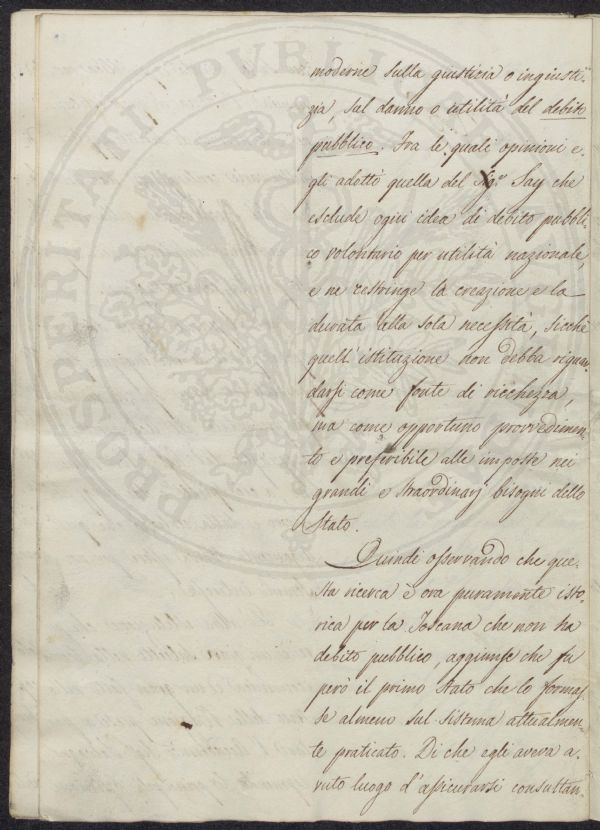 moderne sulla giustizia o ingiusti-
zia, sul danno o utilità del debito
pubblico. Fra le quali opinioni e-
gli adottò quella del Sig.r Say che
esclude ogni idea di debito pubbli-
co volontario per utilità nazionale,
e ne restringe la creazione e la
durata alla sola necessità, sicchè
quell'istituzione non debba riguar-
darsi come fonte di ricchezza,
ma come opportuno provvedimen-
to e preferibile alle imposte nei
grandi e straordinarj bisogni dello
Stato.
Quindi osservando che que-
sta ricerca è ora puramente isto-
rica per la Toscana che non ha
debito pubblico, aggiunse che fu
però il primo Stato che lo formas-
se almeno sul sistema attualmen-
te praticato. Di che egli aveva a-
vuto luogo d'assicurarsi consultan-
PROSPERITATI PVBLI